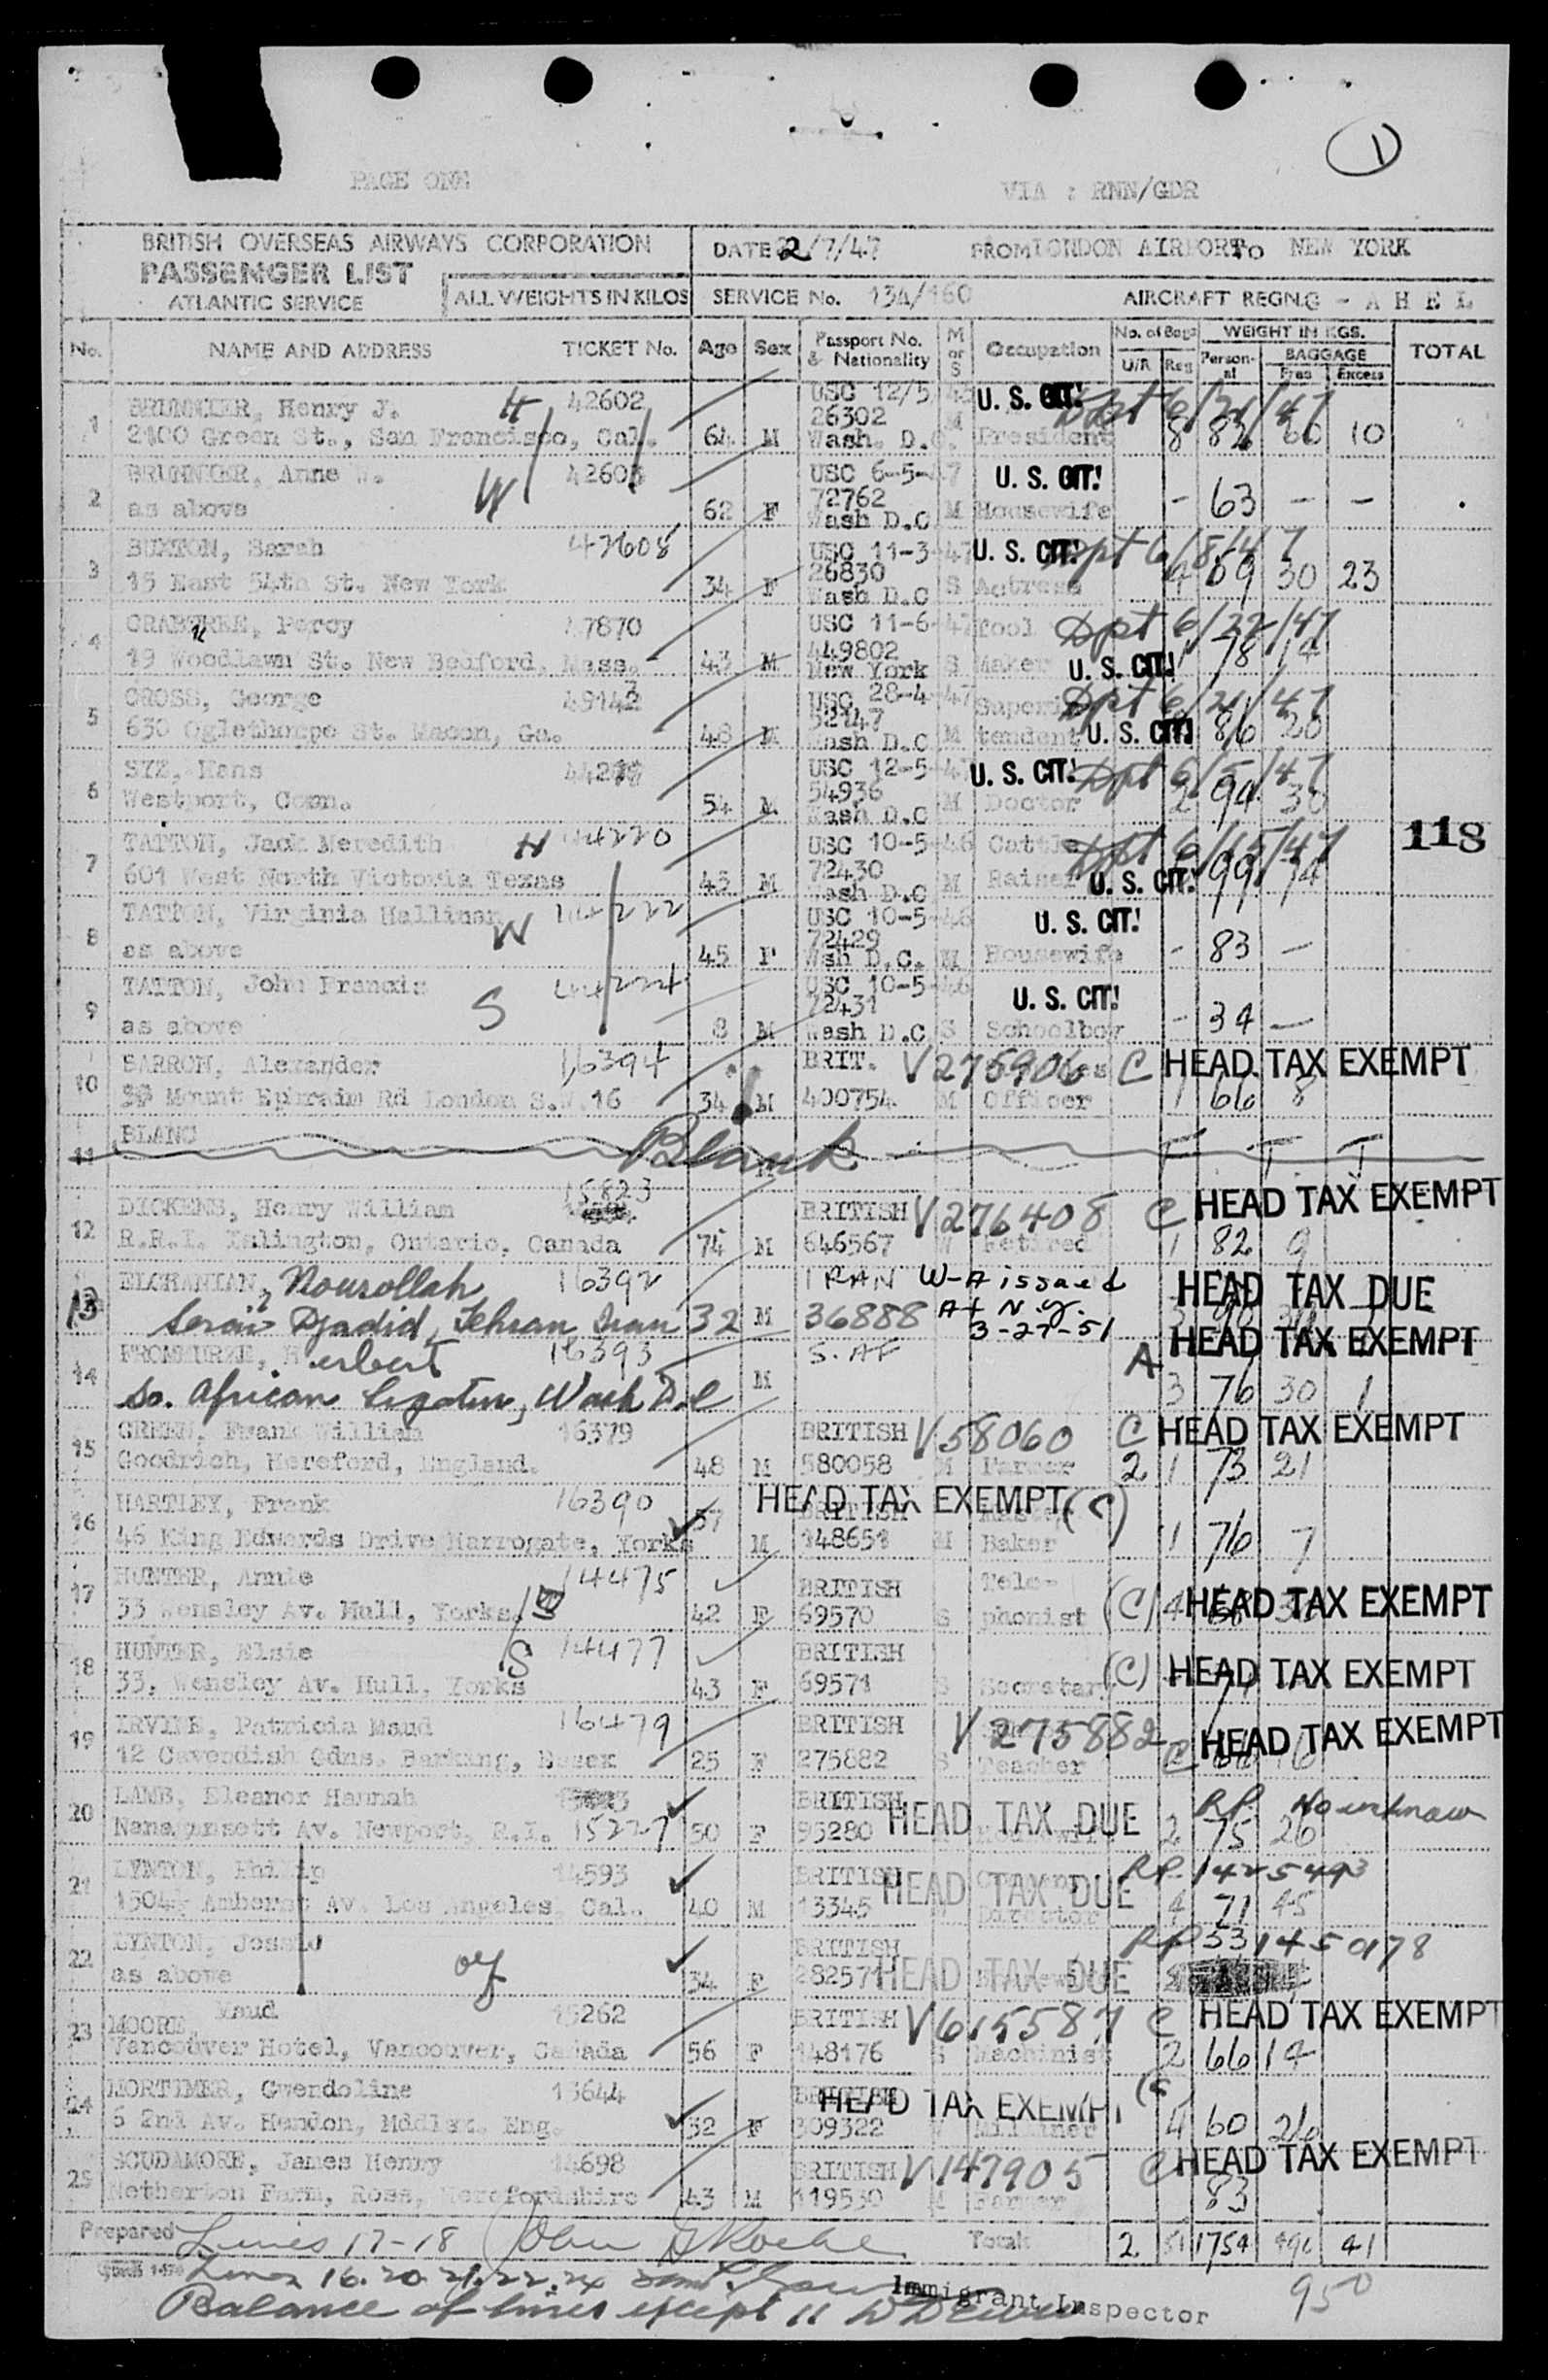 1
PAGE ONE
VIA : RNN/GDR
BRITISH OVERSEAS AIRWAYS CORPORATION
PASSENGER LIST
ATLANTIC SERVICE
ALL WEIGHTS IN KILOS
DATE 2/7/47 FROM LONDON AIRPORT TO NEW YORK
SERVICE No. 134/160 AIRCRAFT REGN. G - A H E L
No. NAME AND ADDRESS TICKET No. Age Sex Passport No. & Nationality M or S Occupation No. of Bags U/R Reg WEIGHT IN KGS. Personal BAGGAGE Free Excess TOTAL
1 BRUNNIER, Henry J. H 42602 USC 12/5 U. S. CIT. Dpt 6/21/47
26302
2100 Green St., San Francisco, Cal. 64 M Wash. D.C. M President 8 60 10
2 BRUNNIER, Anne W. 42603 USC 6-5-47 U. S. CIT.
W 72762
as above 62 F Wash D.C M Housewife - 63 - -
3 BUXTON, Sarah 47605 USC 11-3-47 U. S. CIT. Dpt 6/8/47
26830
15 East 54th St. New York 34 F Wash D.C S Actress 4 59 30 23
4 CRABTREE, Percy 47870 USC 11-6-47 Tool Dpt 6/22/47
449802
19 Woodlawn St. New Bedford, Mass. 43 M New York S Maker U. S. CIT. 1 78 14
5 CROSS, George 49142 USC 28-4-47 Dpt 6/21/47
52147
630 Oglethorpe St. Macon, Ga. 48 M Wash D.C M tendent U. S. CIT. 86 20
6 SYZ, Hans USC 12-5-47 U. S. CIT. Dpt 6/5/47
54936
Westport, Conn. 54 M Wash D.C M Doctor 2 94 30
7 TATTON, Jack Meredith H 44220 USC 10-5-46 Cattle Dpt 6/15/47 118
72430
601 West North Victoria Texas 45 M Wash D.C M Raiser U. S. CIT. 99 74
8 TATTON, Virginia Hallinan 44222 USC 10-5-46 U. S. CIT.
W 72429
as above 45 F Wsh D.C. M Housewife - 83 -
9 TATTON, John Francis 44224 USC 10-5-46 U. S. CIT.
S 72431
as above 8 M Wash D.C S Schoolboy - 34 -
10 BARRON, Alexander 16394 BRIT. V275906 C HEAD TAX EXEMPT
Mount Ephraim Rd London S.W.16 34 M 400754 M Officer 1 66 8
11 BLANC Blank
12 DICKENS, Henry William 15823 BRITISH V276408 C HEAD TAX EXEMPT
R.R.I. Islington, Ontario, Canada 74 M 646567 W Retired 1 82 9
13 ELGHANIAN, Nourollah 16392 IRAN W-A issued HEAD TAX DUE
Serai Djadid, Tehran Iran 32 M 36888 At N.Y. 3-27-51
14 FROMMURZE, Herbert 16393 S. AF A HEAD TAX EXEMPT
So. African Legation, Wash D.C M 3 76 30 1
15 GREEN, Frank William 16379 BRITISH V58060 C HEAD TAX EXEMPT
Goodrich, Hereford, England. 48 M 580058 M Farmer 2 1 73 21
16 HARTLEY, Frank 16390 37 BRITISH HEAD TAX EXEMPT (C)
46 King Edwards Drive Harrogate, Yorks M 148651 M Baker 1 76 7
17 HUNTER, Annie 14475 BRITISH Tele-
33 Wensley Av. Hull, Yorks. 42 F 69570 S phonist (C) 4 HEAD TAX EXEMPT
18 HUNTER, Elsie S 14477 BRITISH
33, Wensley Av. Hull, Yorks 43 F 69571 S Secretary (C) HEAD TAX EXEMPT
19 IRVINE, Patricia Maud 16479 BRITISH V275882
12 Cavendish Gdns. Barking, Essex 25 F 275882 S Teacher C HEAD TAX EXEMPT
20 LAMB, Eleanor Hannah BRITISH RP No unknown
Narragansett Av. Newport, R.I. 15227 50 F 95280 HEAD TAX DUE 2 75 26
21 LYNTON, Philip 14593 BRITISH RP 1425493
Amherst Av. Los Angeles, Cal. 40 M 13345 HEAD TAX DUE Director 4 71 45
22 LYNTON, BRITISH RP 53 1450178
as above 34 F 282571 HEAD TAX DUE
23 MOORE, Maud 15262 BRITISH V615587 C HEAD TAX EXEMPT
Vancouver Hotel, Vancouver, Canada 56 F 148176 S Machinist 2 66 14
24 MORTIMER, Gwendoline 13644 BRITISH HEAD TAX EXEMPT (C
6 2nd Av. Hendon, Mddlex. Eng. 32 F 309322 Milliner 4 60 26
25 SCUDAMORE, James Henry 14698 BRITISH V147905 C HEAD TAX EXEMPT
Netherton Farm, Ross, Herefordshire 43 M 119530 Farmer 83
Prepared Lines 17-18 John G Roche Total 2 51 1754 496 41
Lines 16.20.21.22.24 Immigrant Inspector 950
Balance of lines except 11